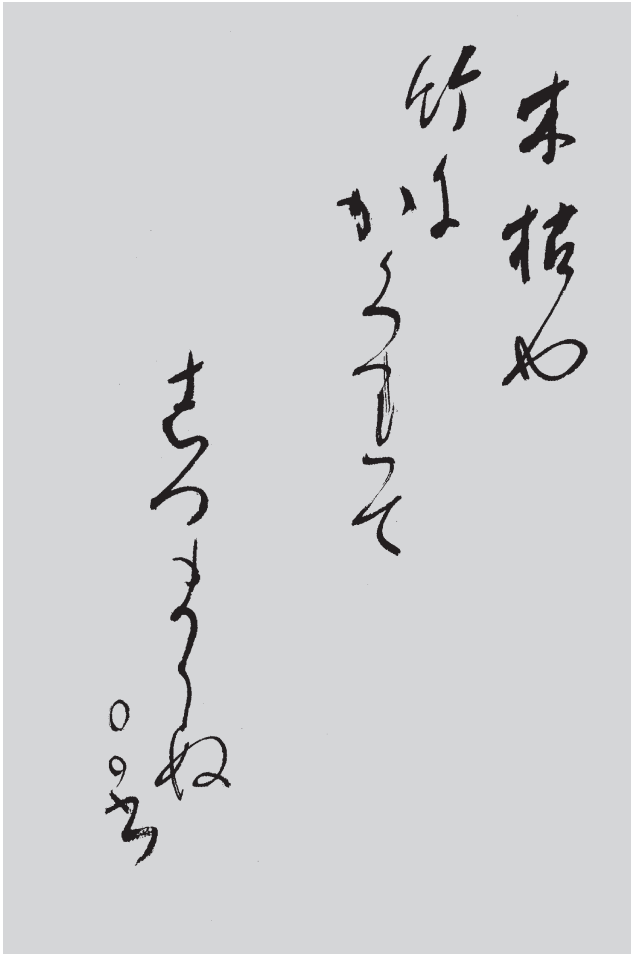 木枯や
竹にかくれて
しづまりぬ
〇〇書